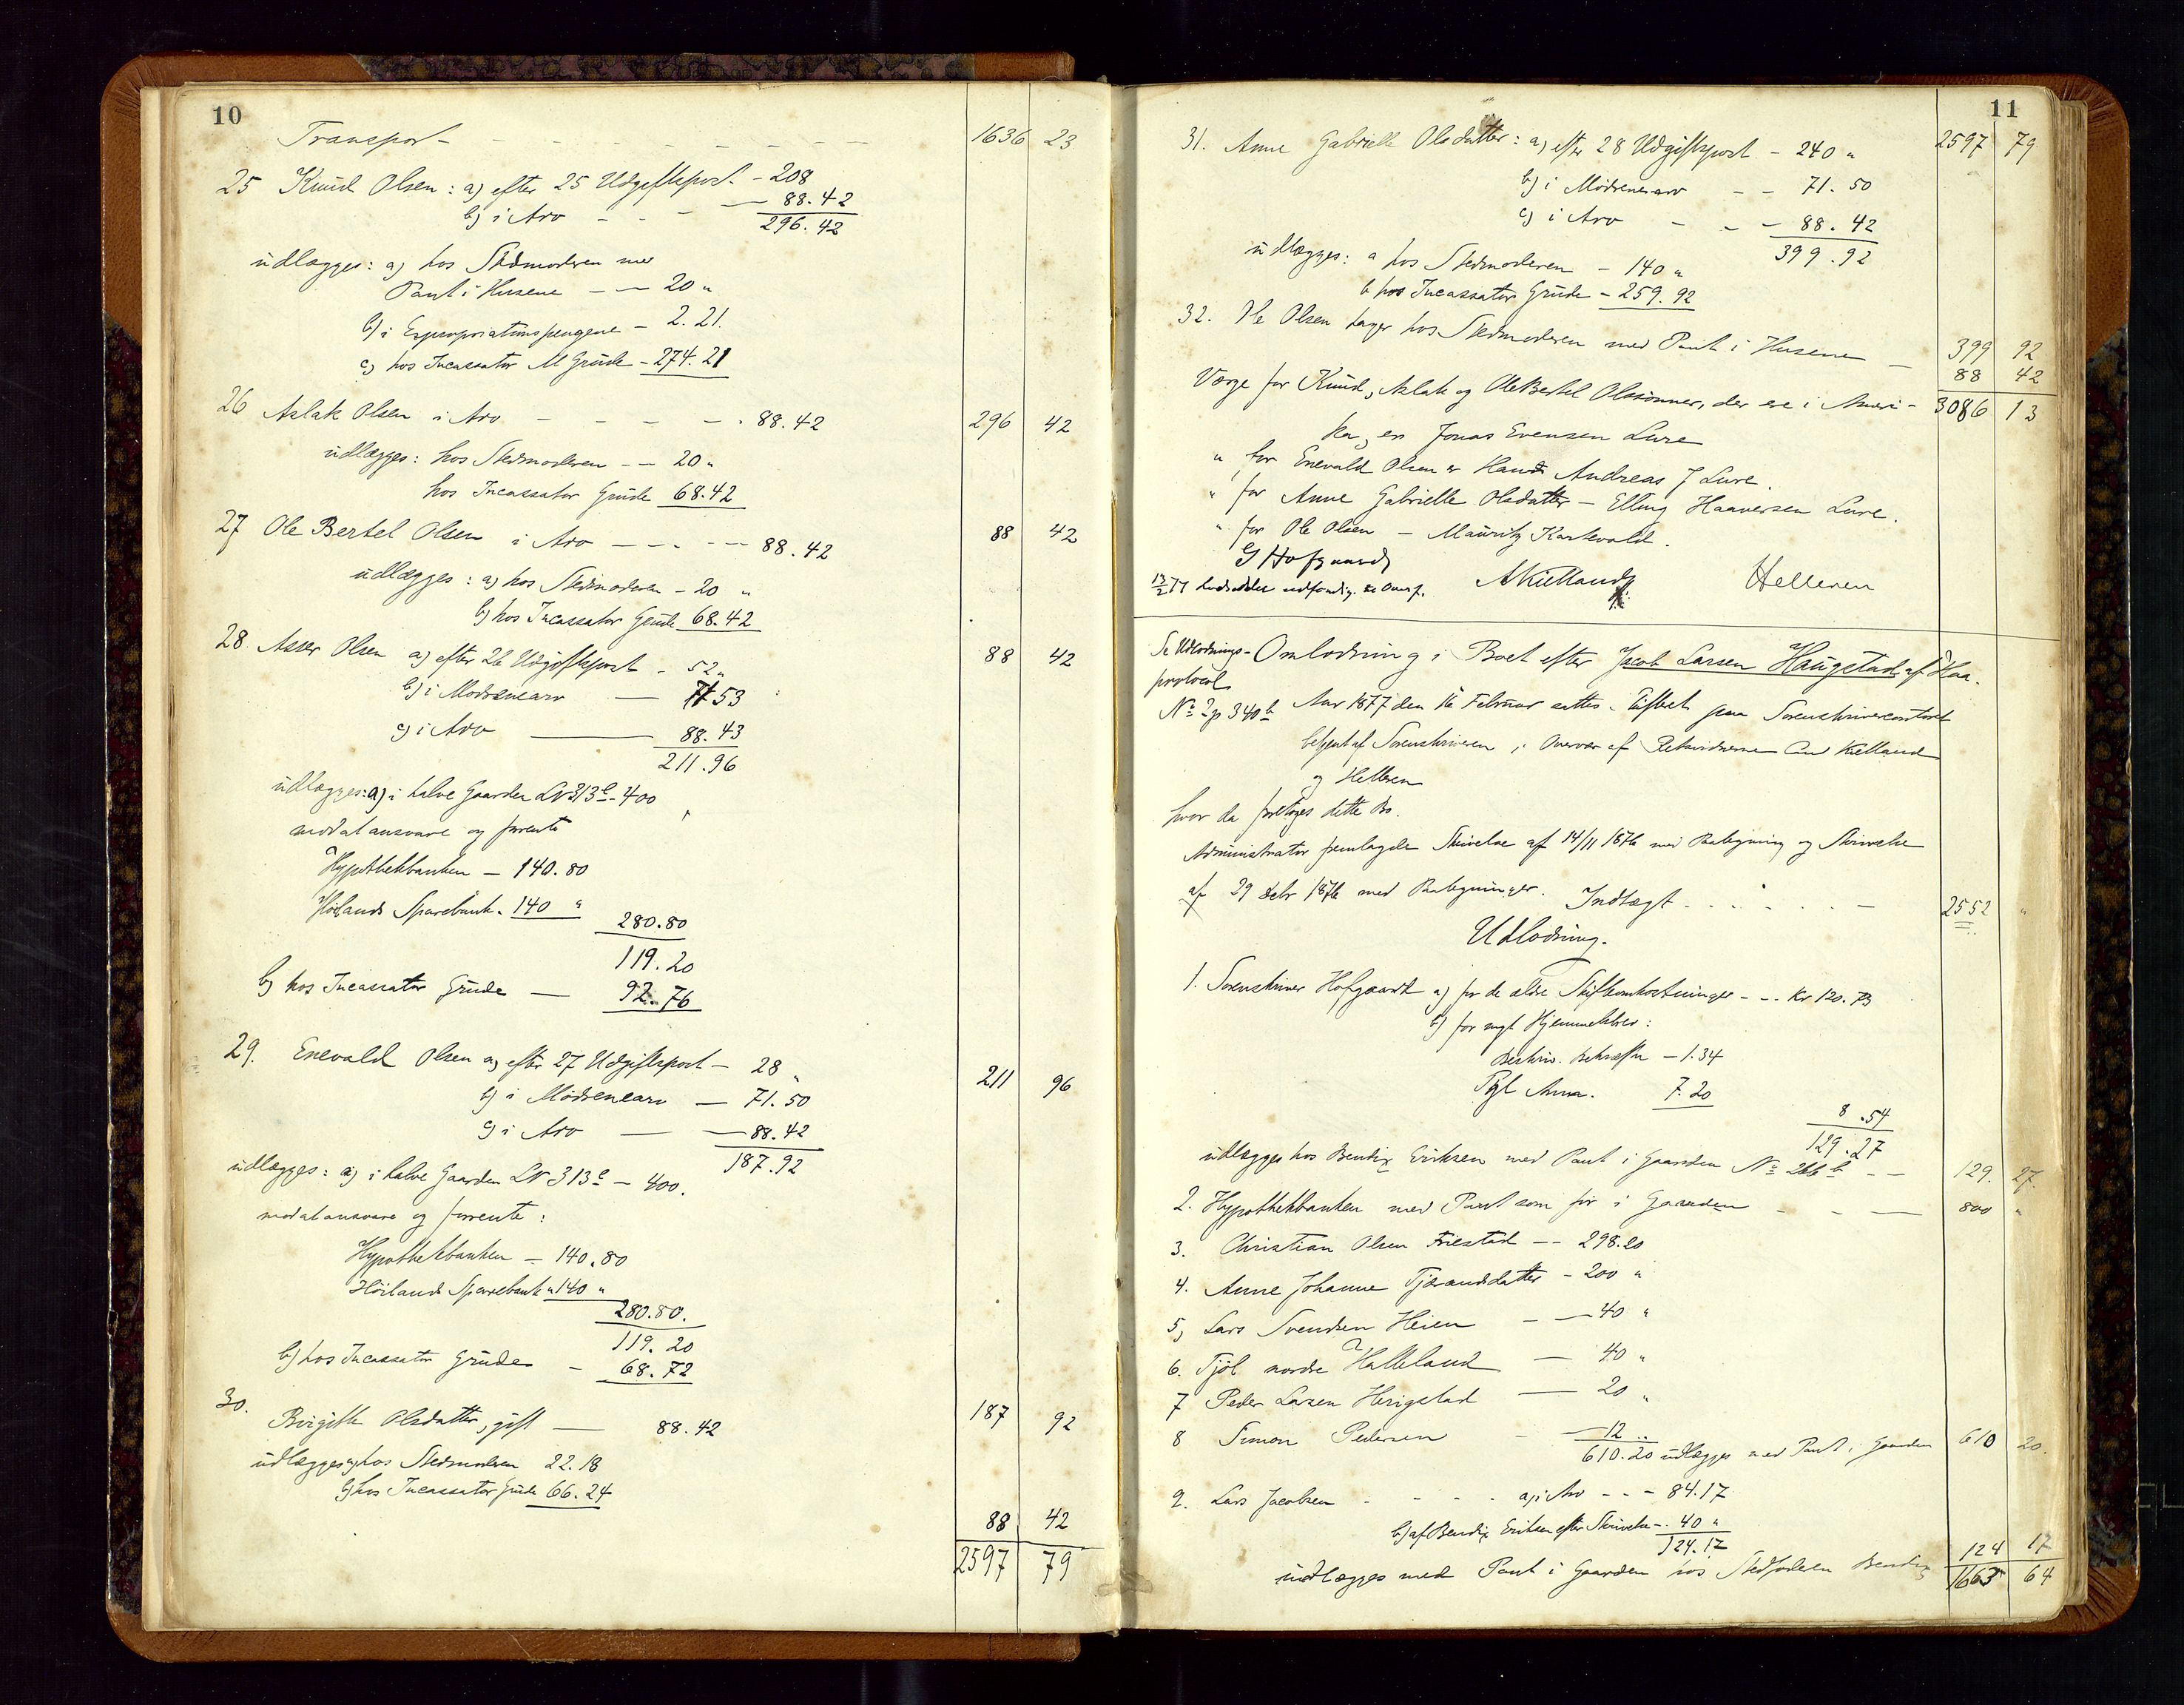 10
Transport - - - - - - - - - 1636 23
25 Knud Olsen: a) efter 25 Udgiftspost - 208
b) i Arv - - - 88.42
296.42
udlægges: a) hos Stedmoderen med
Pant i Husene - - 20 "
b) i Expropriationspengene - 2.21.
c) hos Incassator M Grude - 274.21
26 Aslak Olsen i Arv - - - - 88.42 296 42
udlægges: hos Stedmoderen - - 20 "
hos Incassator Grude 68.42
27 Ole Bertel Olsen i Arv - - - - 88.42 88 42
udlægges: a) hos Stedmoderen - 20 "
b) hos Incassator Grude 68.42
28 Asser Olsen a) efter 26 Udgiftspost - 52 " 88 42
b) i Mødrenearv - 71 53
c) i Arv - 88.43
211.96
udlægges: a) i halve Gaarden LN 313 - 400
mod at ansvare og forrente
Hypothekbanken - 140.80
Høilands Sparebank - 140 "
280.80
119.20
b) hos Incassator Grude - 92.76
29. Enevald Olsen a) efter 27 Udgiftspost - 28 " 211 96
b) i Mødrenearv - 71.50
c) i Arv - - 88.42
187.92
udlægges: a) i halve Gaarden LN 313 - 400.
mod at ansvare og forrente:
Hypothekbanken - 140.80
Høilands Sparebank " 140 "
280.80.
119.20
b) hos Incassator Grude - 68.72
30. Birgitte Olsdatter, gift - 88.42 187 92
udlægges a) hos Stedmoderen 22.18
b) hos Incassator Grude 66.24
88 42
2597 79
11
31. Anne Gabrielle Olsdatter: a) efter 28 Udgiftspost - 240 " 2597 79
b) i Mødrenearv - - 71.50
c) i Arv - - - 88.42
399.92
udlægges: a hos Stedmoderen - 140 "
b hos Incassator Grude - 259.92
399 92
32. Ole Olsen tager hos Stedmoderen med Pant i Husene - 88 42
3086 13
Værge for Knud, Aslak og Ole Bertel Olssønner, der ere i Ameri-
ka, er Jonas Evensen Lure
" for Enevald Olsen er Hans Andreas J Lure.
" for Anne Gabrielle Olsdatter - Elling Haaversen Lure.
" for Ole Olsen - Mauritz Kartevold.
G Hofgaard
A Kielland
Helleren
Se Udlodnings-
protocol
No 2 p 340 b
Omlodning i Boet efter Jacob Larsen Haugstad af Haa.
Aar 1877 den 16 Februar sattes Skifteret paa Sorenskrivercontoret
betjent af Sorenskriveren i Overvær af Retsvidnerne And Kielland
og Helleren
hvor da foretoges dette Bo.
Administrator fremlagde Skrivelse af 14/11 1876 med Paategning og Skrivelse
af 29 Debr 1876 med Paategninger. Indtægt - - - - - - 2552 "
Udlodning.
1. Sorenskriver Hofgaard a) for de ældre Skifteomkostninger - - Kr 120.73
b) for nyt Hjemmelsbrev:
Beskriv. Bekræftn - 1.34
Tgl Anm. 7.20
8.54
129.27
udlægges hos Bendix Eriksen med Pant i Gaarden No 266 b - - 129. 27.
2. Hypothekbanken med Pant som før i Gaarden - - - 800 "
3. Christian Olsen Friestad - - 298.20
4. Anne Johanne Tjerandsdatter - 200 "
5, Lars Svendsen Heien - - 40 "
6. Tjøl nordre Halleland - 40 "
7 Peder Larsen Herigstad - 20 "
8 Simon Pedersen - 12 "
610.20 udlægges med Pant i Gaarden 610 20.
9. Lars Jacobsen - - - - a) i Arv - - - 84.17
b) af Bendix Eriksen efter Skrivelse - 40 "
124.17
udlægges med Pant i Gaarden hos Stedfaderen Bendix 124 17
1663 64